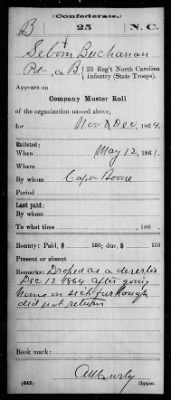 (Confederate.)
B 25 N.C.
Seborn Buchanan
Pvt, Co. B, 25 Reg't North Carolina
Infantry (State Troops).
Appears on
Company Muster Roll
of the organization named above,
for Nov & Dec, 1864.
Enlisted:
When May 12, 186
Where
By whom Capn Boone
Period
Last paid:
By whom
To what time , 186 .
Bounty: Paid, $ 100; due $ 100
Present or absent
Remarks: Droped as a deserter
Dec 12 1864 after going
home on sick furlough
did not return
Book mark:
(642) Copyist.